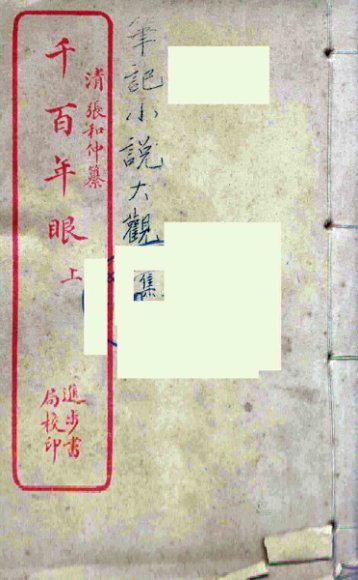 筆記小説大觀
集
清 張和仲纂
千百年眼 上
進步書
局校印